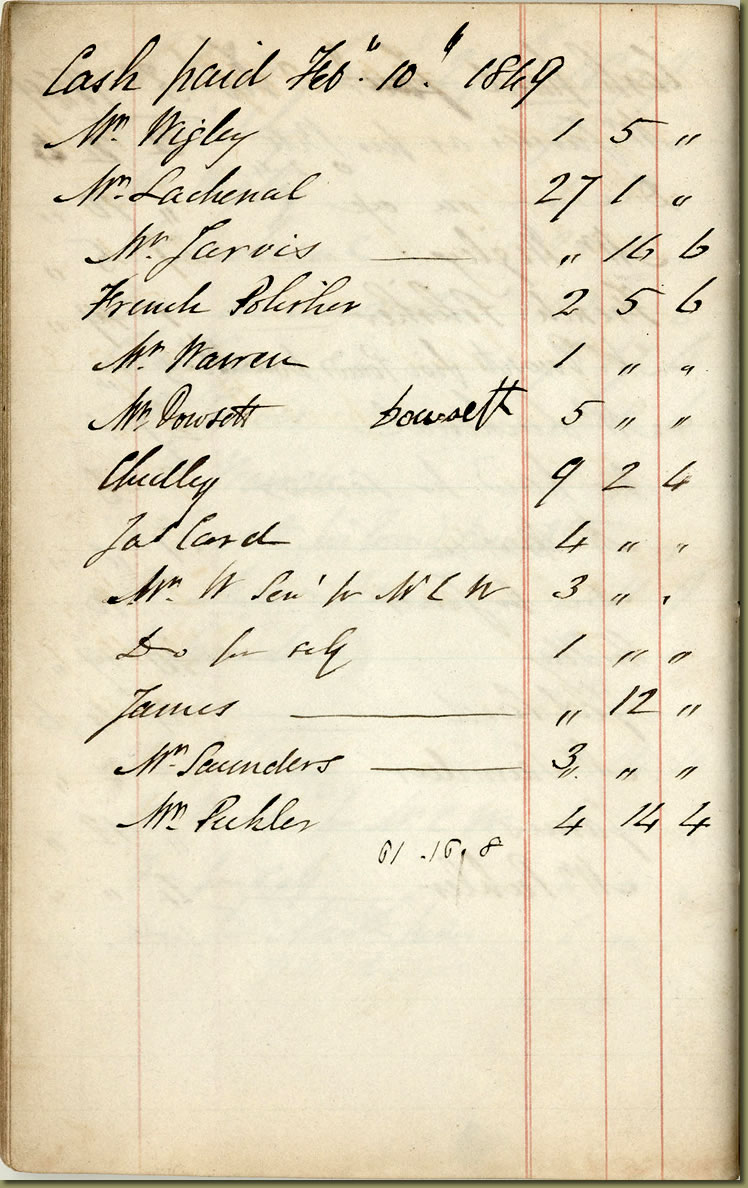 Cash paid Feb" 10" 1869
Mr. Wigley 1 5 "
Mr. Lachenal 27 1 "
Mr. Jarvis — " 16 6
French Polisher 2 5 6
Mr. Warren 1 " "
Mr. Dowsett Dowsett 5 " "
Chidley 9 2 4
Jas Card 4 " "
Mr. W Senr for W L W 3 " "
Do for self 1 " "
James — " 12 "
Mr. Saunders — 3 " "
Mr. Pichler 4 14 4
61 . 16 . 8